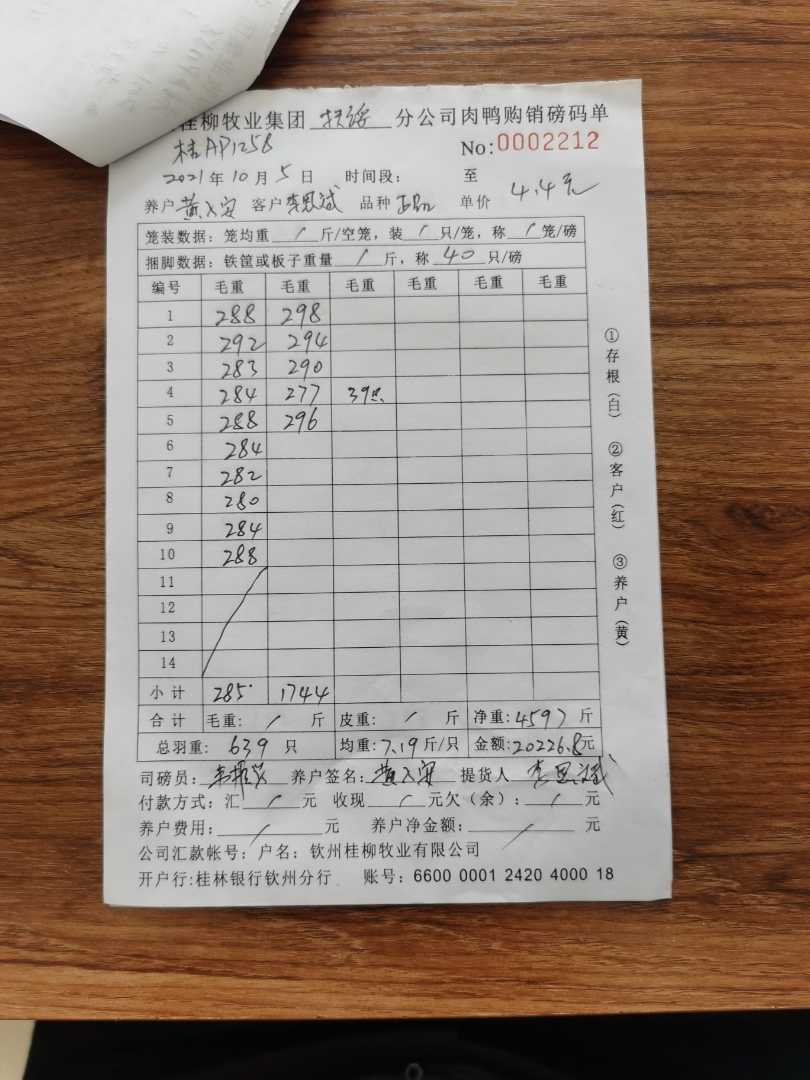 桂柳牧业集团 扶绥 分公司肉鸭购销磅码单
桂AP1258 No:0002212
2021年10月5日 时间段: 至
养户 客户李思斌 品种正品 单价 4.4元
笼装数据: 笼均重 / 斤/空笼, 装 / 只/笼, 称 / 笼/磅
捆脚数据: 铁筐或板子重量 / 斤, 称 40 只/磅
编号 毛重 毛重 毛重 毛重 毛重 毛重
1 288 298
2 292 294
3 283 290
4 284 277 39只
5 288 296
6 284
7 282
8 280
9 284
10 288
11
12
13
14
小计 285 1744
合计 毛重: / 斤 皮重: / 斤 净重: 4597 斤
总羽重: 639 只 均重: 7.19斤/只 金额: 20226.8元
司磅员: 养户签名: 提货人 李思斌
付款方式: 汇 / 元 收现 / 元欠(余): / 元
养户费用: / 元 养户净金额: / 元
公司汇款帐号: 户名: 钦州桂柳牧业有限公司
开户行:桂林银行钦州分行 账号: 6600 0001 2420 4000 18
①存根(白) ②客户(红) ③养户(黄)